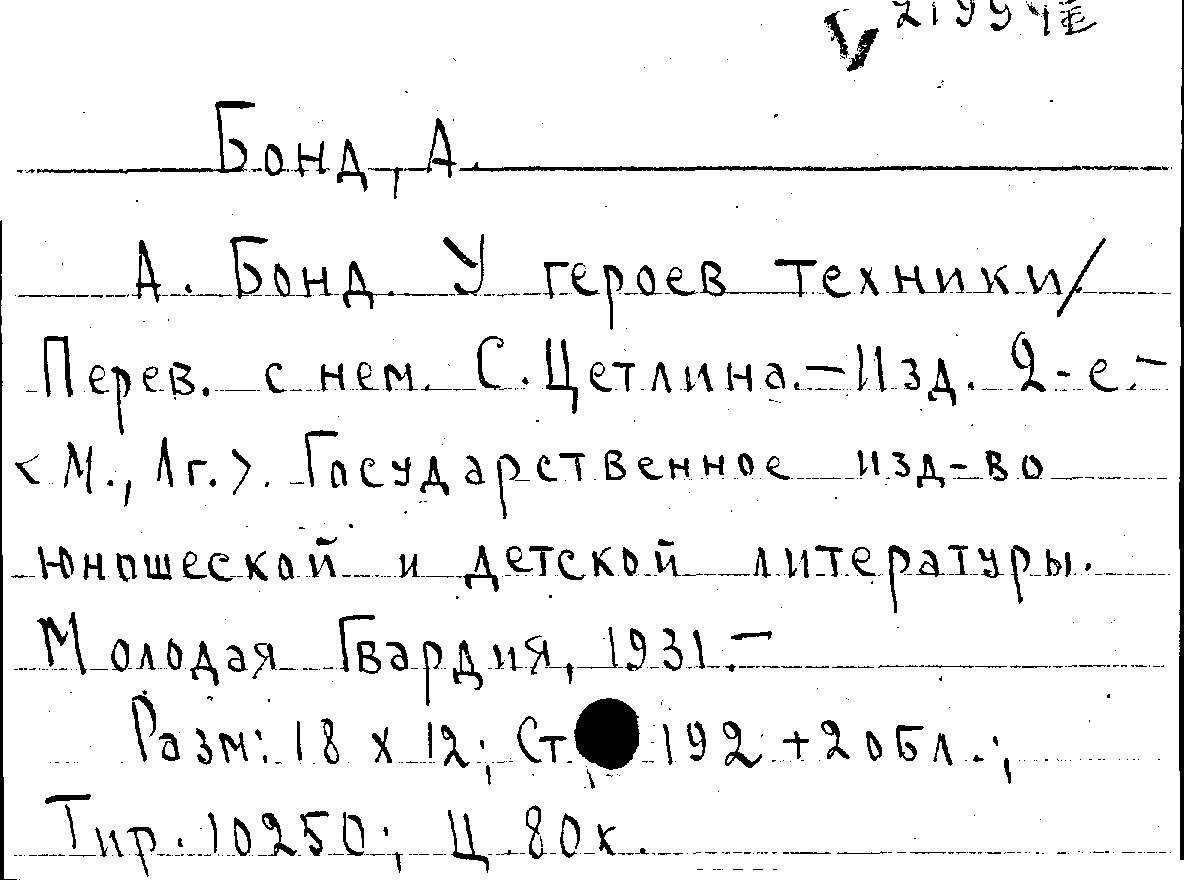 Бонд, А.
А. Бонд. У героев техники/
Перев. с нем. С. Цетлина.—Изд. 2-е.—
<М., Лг.>. Государственное изд-во
юношеской и детской литературы.
Молодая Гвардия, 1931.—
Разм: 18 х 12; Ст 192 + 2 обл.;
Тир. 10250; Ц. 80к.